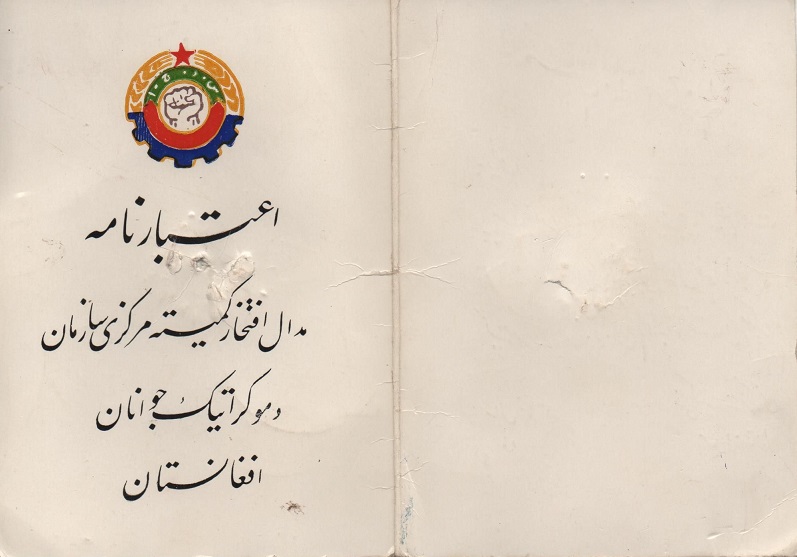 س.د.ج.ا
اعتبارنامه
مدال افتخار کمیته مرکزی سازمان
دموکراتیک جوانان
افغانستان